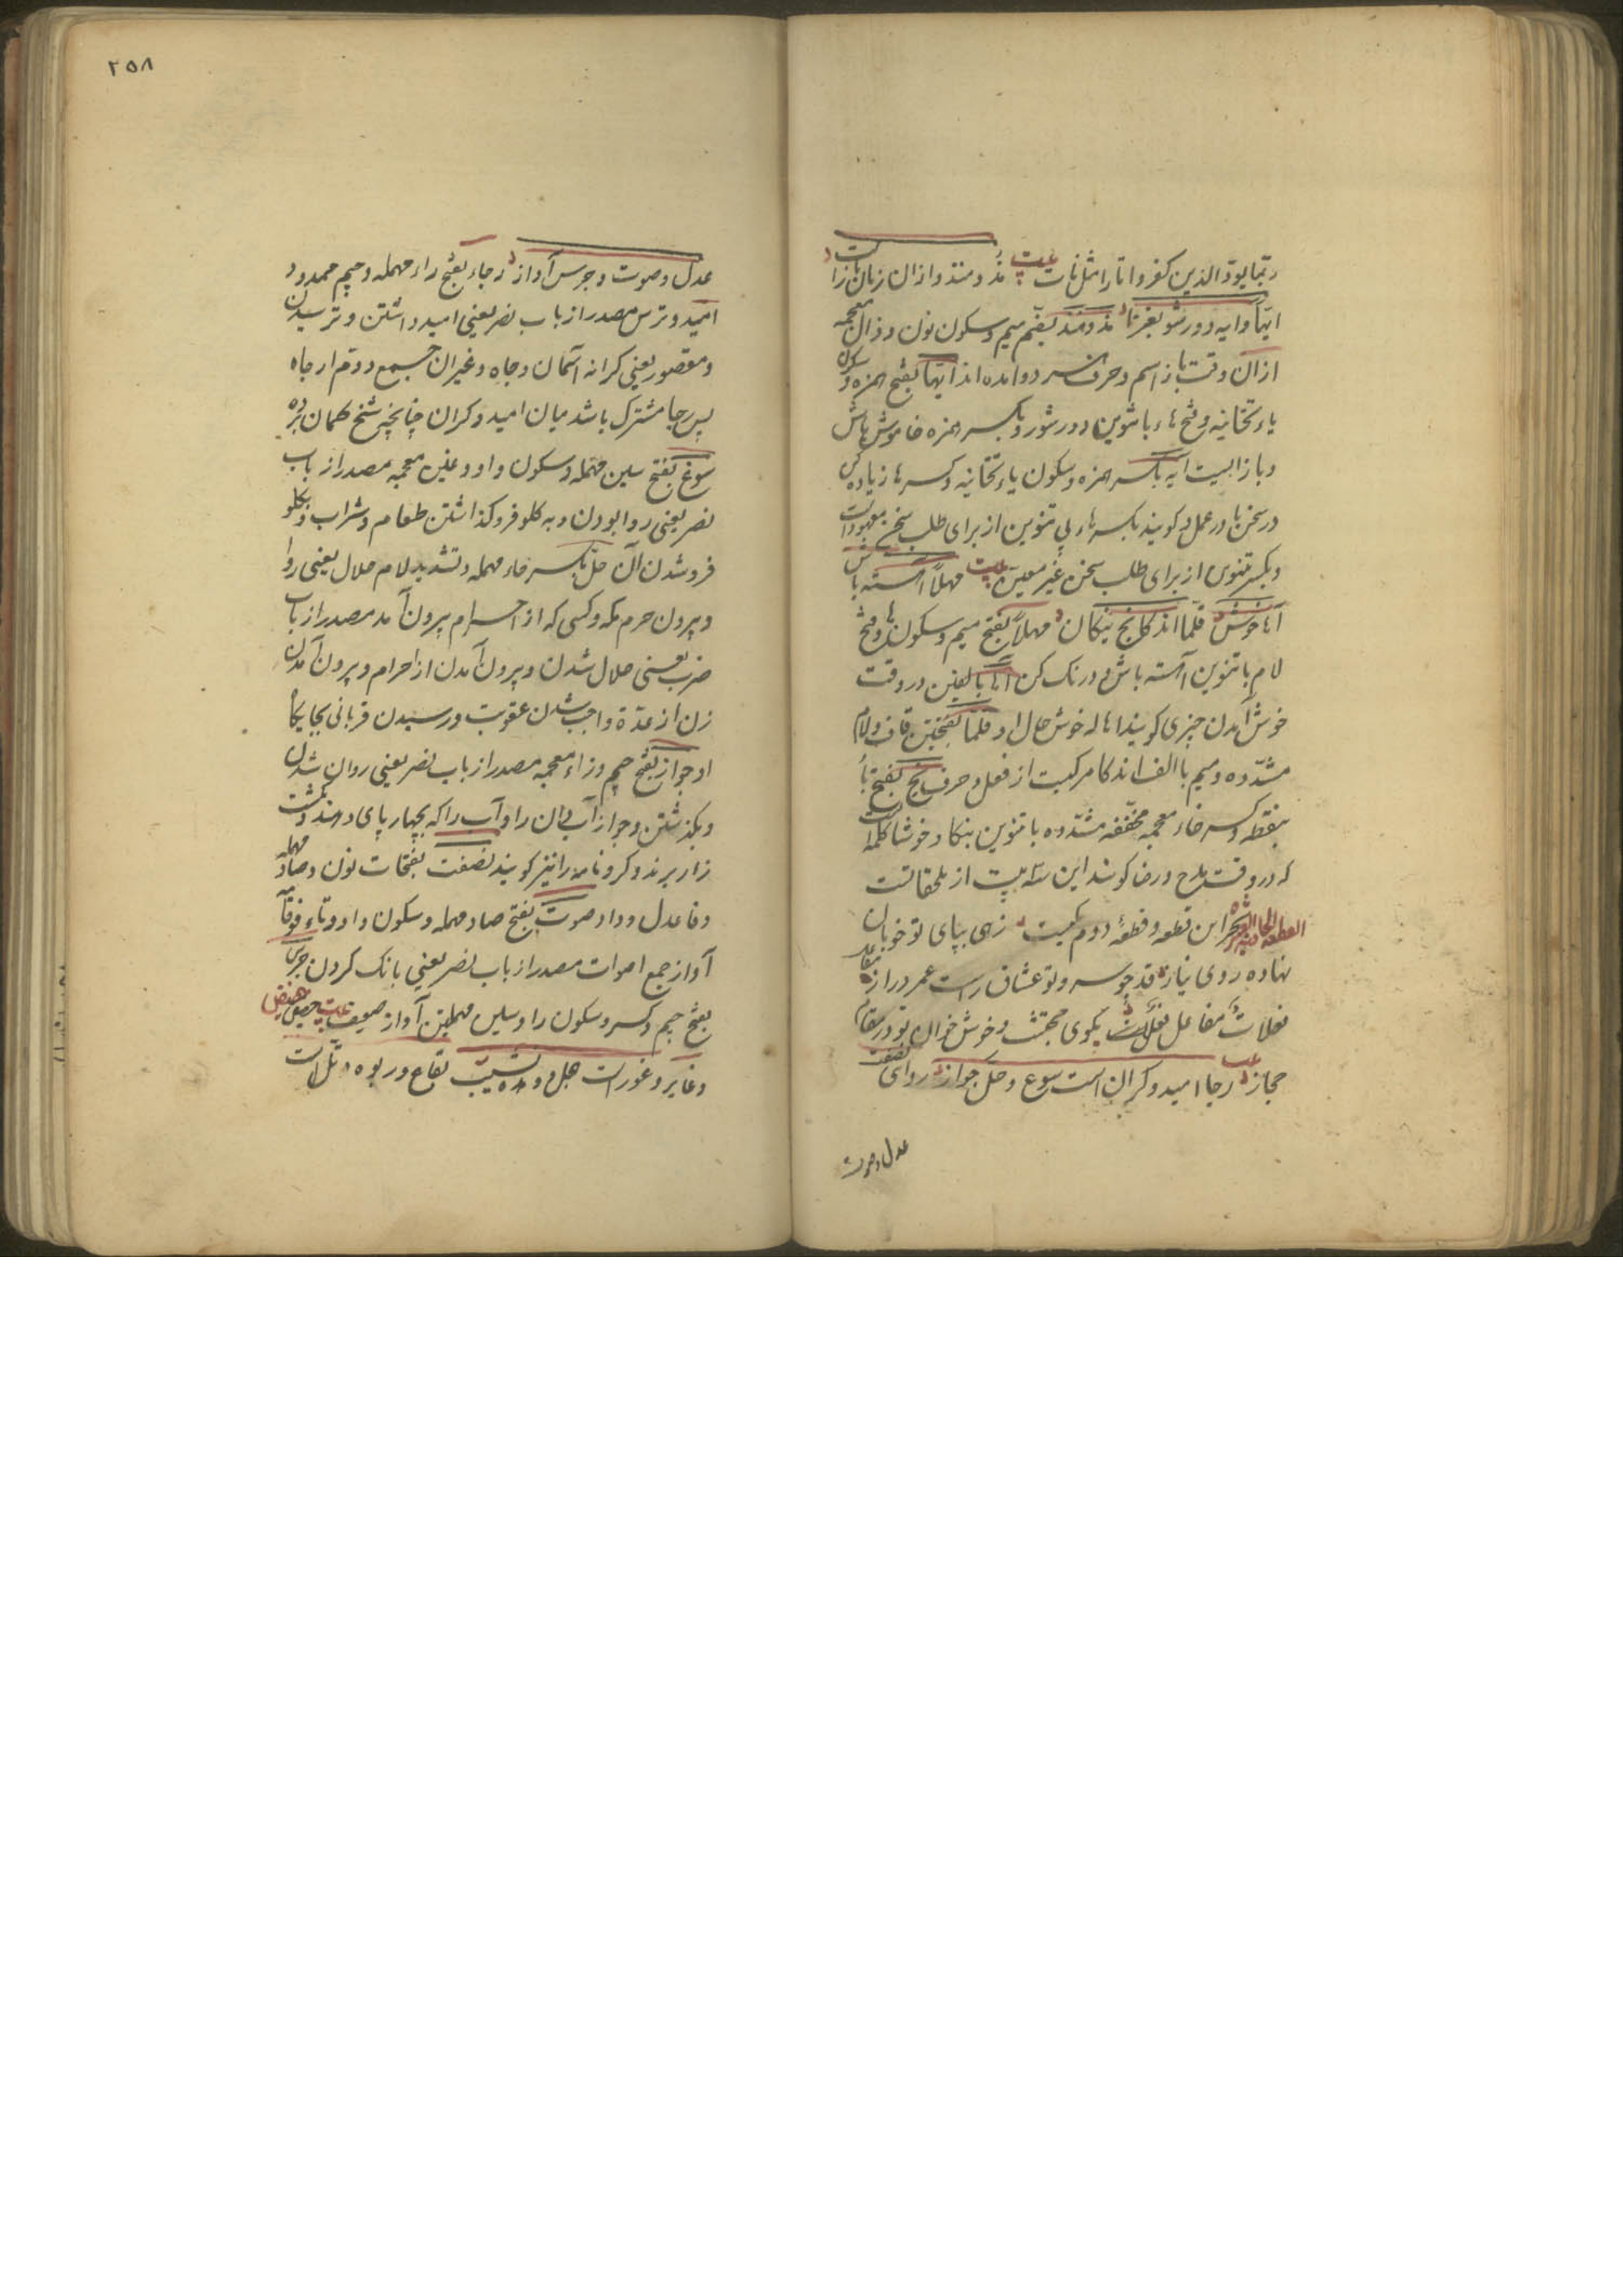 ربما یود الذین کفروا تا را مثل تات بیت مذ و منذ و ازان زمان باز است
ایها و ایه دور شو بغرنا مذ و منذ بضم میم و سکون نون و ذال معجمه
ازان وقت باز اسم و حرف جر دو آمده اند ایها بفتح همزه و سکون
یاء تحتانیه و فتح هاء با تنوین دور شو و بکسر همزه خاموش باش
و باز ایست ایه بکسر همزه و سکون یاء تحتانیه و کسر ها زیاده کن
در سخن یا در عمل و گویند بکسر هاء بی تنوین از برای طلب سخن معهود است
و بکسر تنوین از برای طلب سخن غیر معین بیت مهلا آهسته باش
آها خوش قلما اندکا بخ نیکا ن مهلا بفتح میم و سکون ها و فتح
لام با تنوین آهسته باش و درنگ کن آها بالفین در وقت
خوش آمدن چیزی گویند اها له خوش حال او قلما بفتحتین قاف و لام
مشدده و میم با الف اندکا مرکبست از فعل و حرف بخ بفتح باء
بنقطه و کسر خاء معجمه مخففه مشدده با تنوین نیکا و خوشا کلمه است
که در وقت مدح و رضا گویند این سه بیت از ملحقاتست
القطعة الحادیة بحر این قطعه و قطعهٔ دوم یکیست زهی بپای تو خوبان
نهاده روی نیاز قد چو سرو تو عشاق راست عمر دراز مفاعلن
فعلات مفاعلن فعلات بگوی مجتث و خوش خوان تو در مقام
حجاز رجا امید و کران است سوغ و حل جواز روای نصفت
عدل و صوت
۲۵۸
عدل و صوت و جرس آواز رجاء بفتح راء مهمله و جیم ممدود
امید و ترس مصدر از باب نصر یعنی امید داشتن و ترسیدن
و مقصور یعنی کرانه آسمان و جاه و غیر ان جمع دوم ارجاه
پس رجا مشترک باشد میان امید و کران چنانچه شیخ گمان برده
سوغ بفتح سین مهمله و سکون واو و غین معجمه مصدر از باب
نصر یعنی روا بودن و به کلو فرو گذاشتن طعام و شراب و بکلو
فرو شدن آن حل بکسر حاء مهمله و تشدید لام حلال یعنی روا
و بیرون حرم مکه و کسی که از احرام بیرون آمد مصدر از باب
ضرب یعنی حلال شدن و بیرون آمدن از احرام و بیرون آمدن
زن از عدة و واجب شدن عقوبت و رسیدن قربانی بجایگاه
او جواز بفتح جیم و زاء معجمه مصدر از باب نصر یعنی روان شدن
و بگذشتن و جواز آب دان را و آب را که بچهارپای دهند و کشت
زار برند و کرو نامه را نیز گویند نصفت بفتحات نون و صاد مهمله
و فا عدل و داد صوت بفتح صاد مهمله و سکون واو و تاء فوقانیه
آواز جمع اصوات مصدر از باب نصر یعنی بانگ کردن جرس
بفتح جیم و کسر و سکون را و سین مهملتین آواز ضعیف بیت حضیض
و غایر و غور است هبل و وهده نشیب بقاع و ربوه و تل است